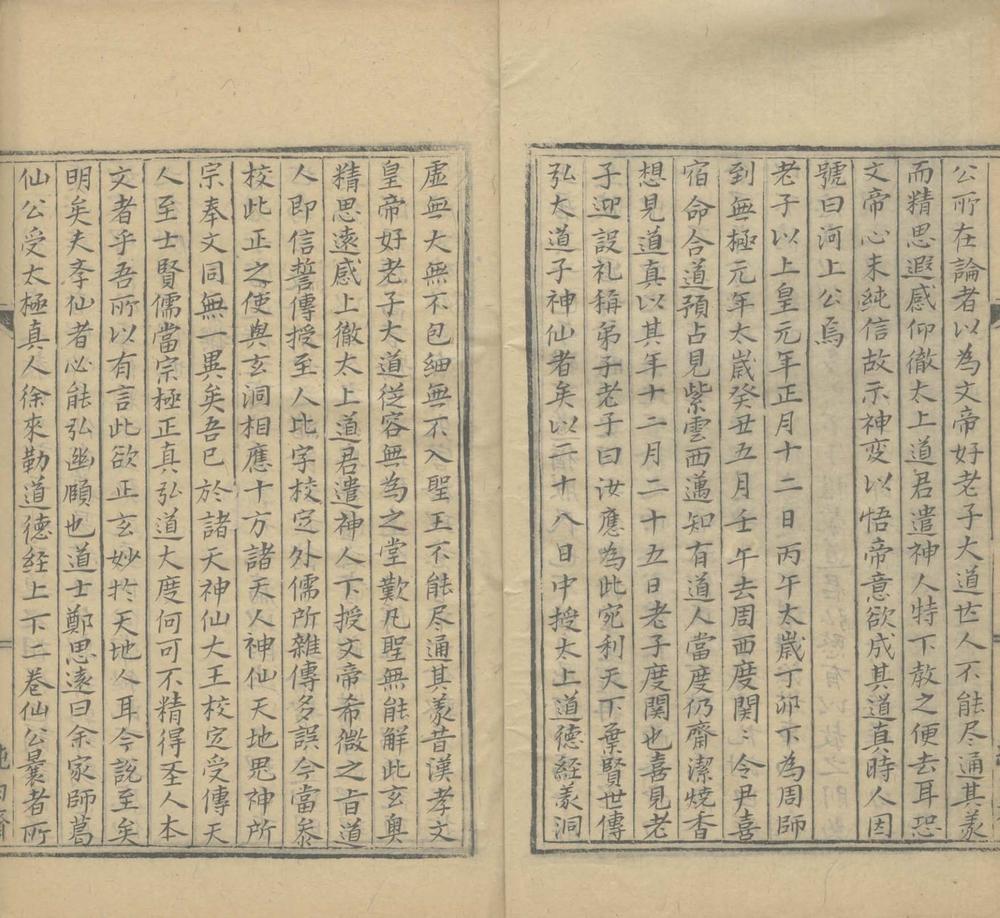 公所在論者以為文帝好老子大道世人不能尽通其義
而精思遐感仰徹太上道君遣神人特下教之便去耳恐
文帝心未純信故示神変以悟帝意欲成其道真時人因
號曰河上公焉
老子以上皇元年正月十二日丙午太歲丁卯下為周師
到無極元年太歲癸丑五月壬午去周西度関〻令尹喜
宿命合道預占見紫雲西邁知有道人當度仍齋潔燒香
想見道真以其年十二月二十五日老子度関也喜見老
子迎設礼稱弟子老子曰汝應為此宛利天下棄賢世傳
弘大道子神仙者矣以二十八日中授太上道德経義洞
虛無大無不包細無不入聖王不能尽通其義昔漢孝文
皇帝好老子大道従容無為之堂歎凡聖無能解此玄奥
精思遠感上徹太上道君遣神人下授文帝希微之旨道
人即信誓傳授至人比字校定外儒所雜傳多誤今當叅
校此正之使與玄洞相應十方諸天人神仙天地鬼神所
宗奉文同無一異矣吾已於諸天神仙大王校定受傳天
人至士賢儒當宗極正真弘道大度何可不精得圣人本
文者乎吾所以有言此欲正玄妙扵天地人耳今說至矣
明矣夫斈仙者必能弘幽頤也道士鄭思遠曰余家師葛
仙公受太極真人徐來勒道德経上下二巻仙公曩者所